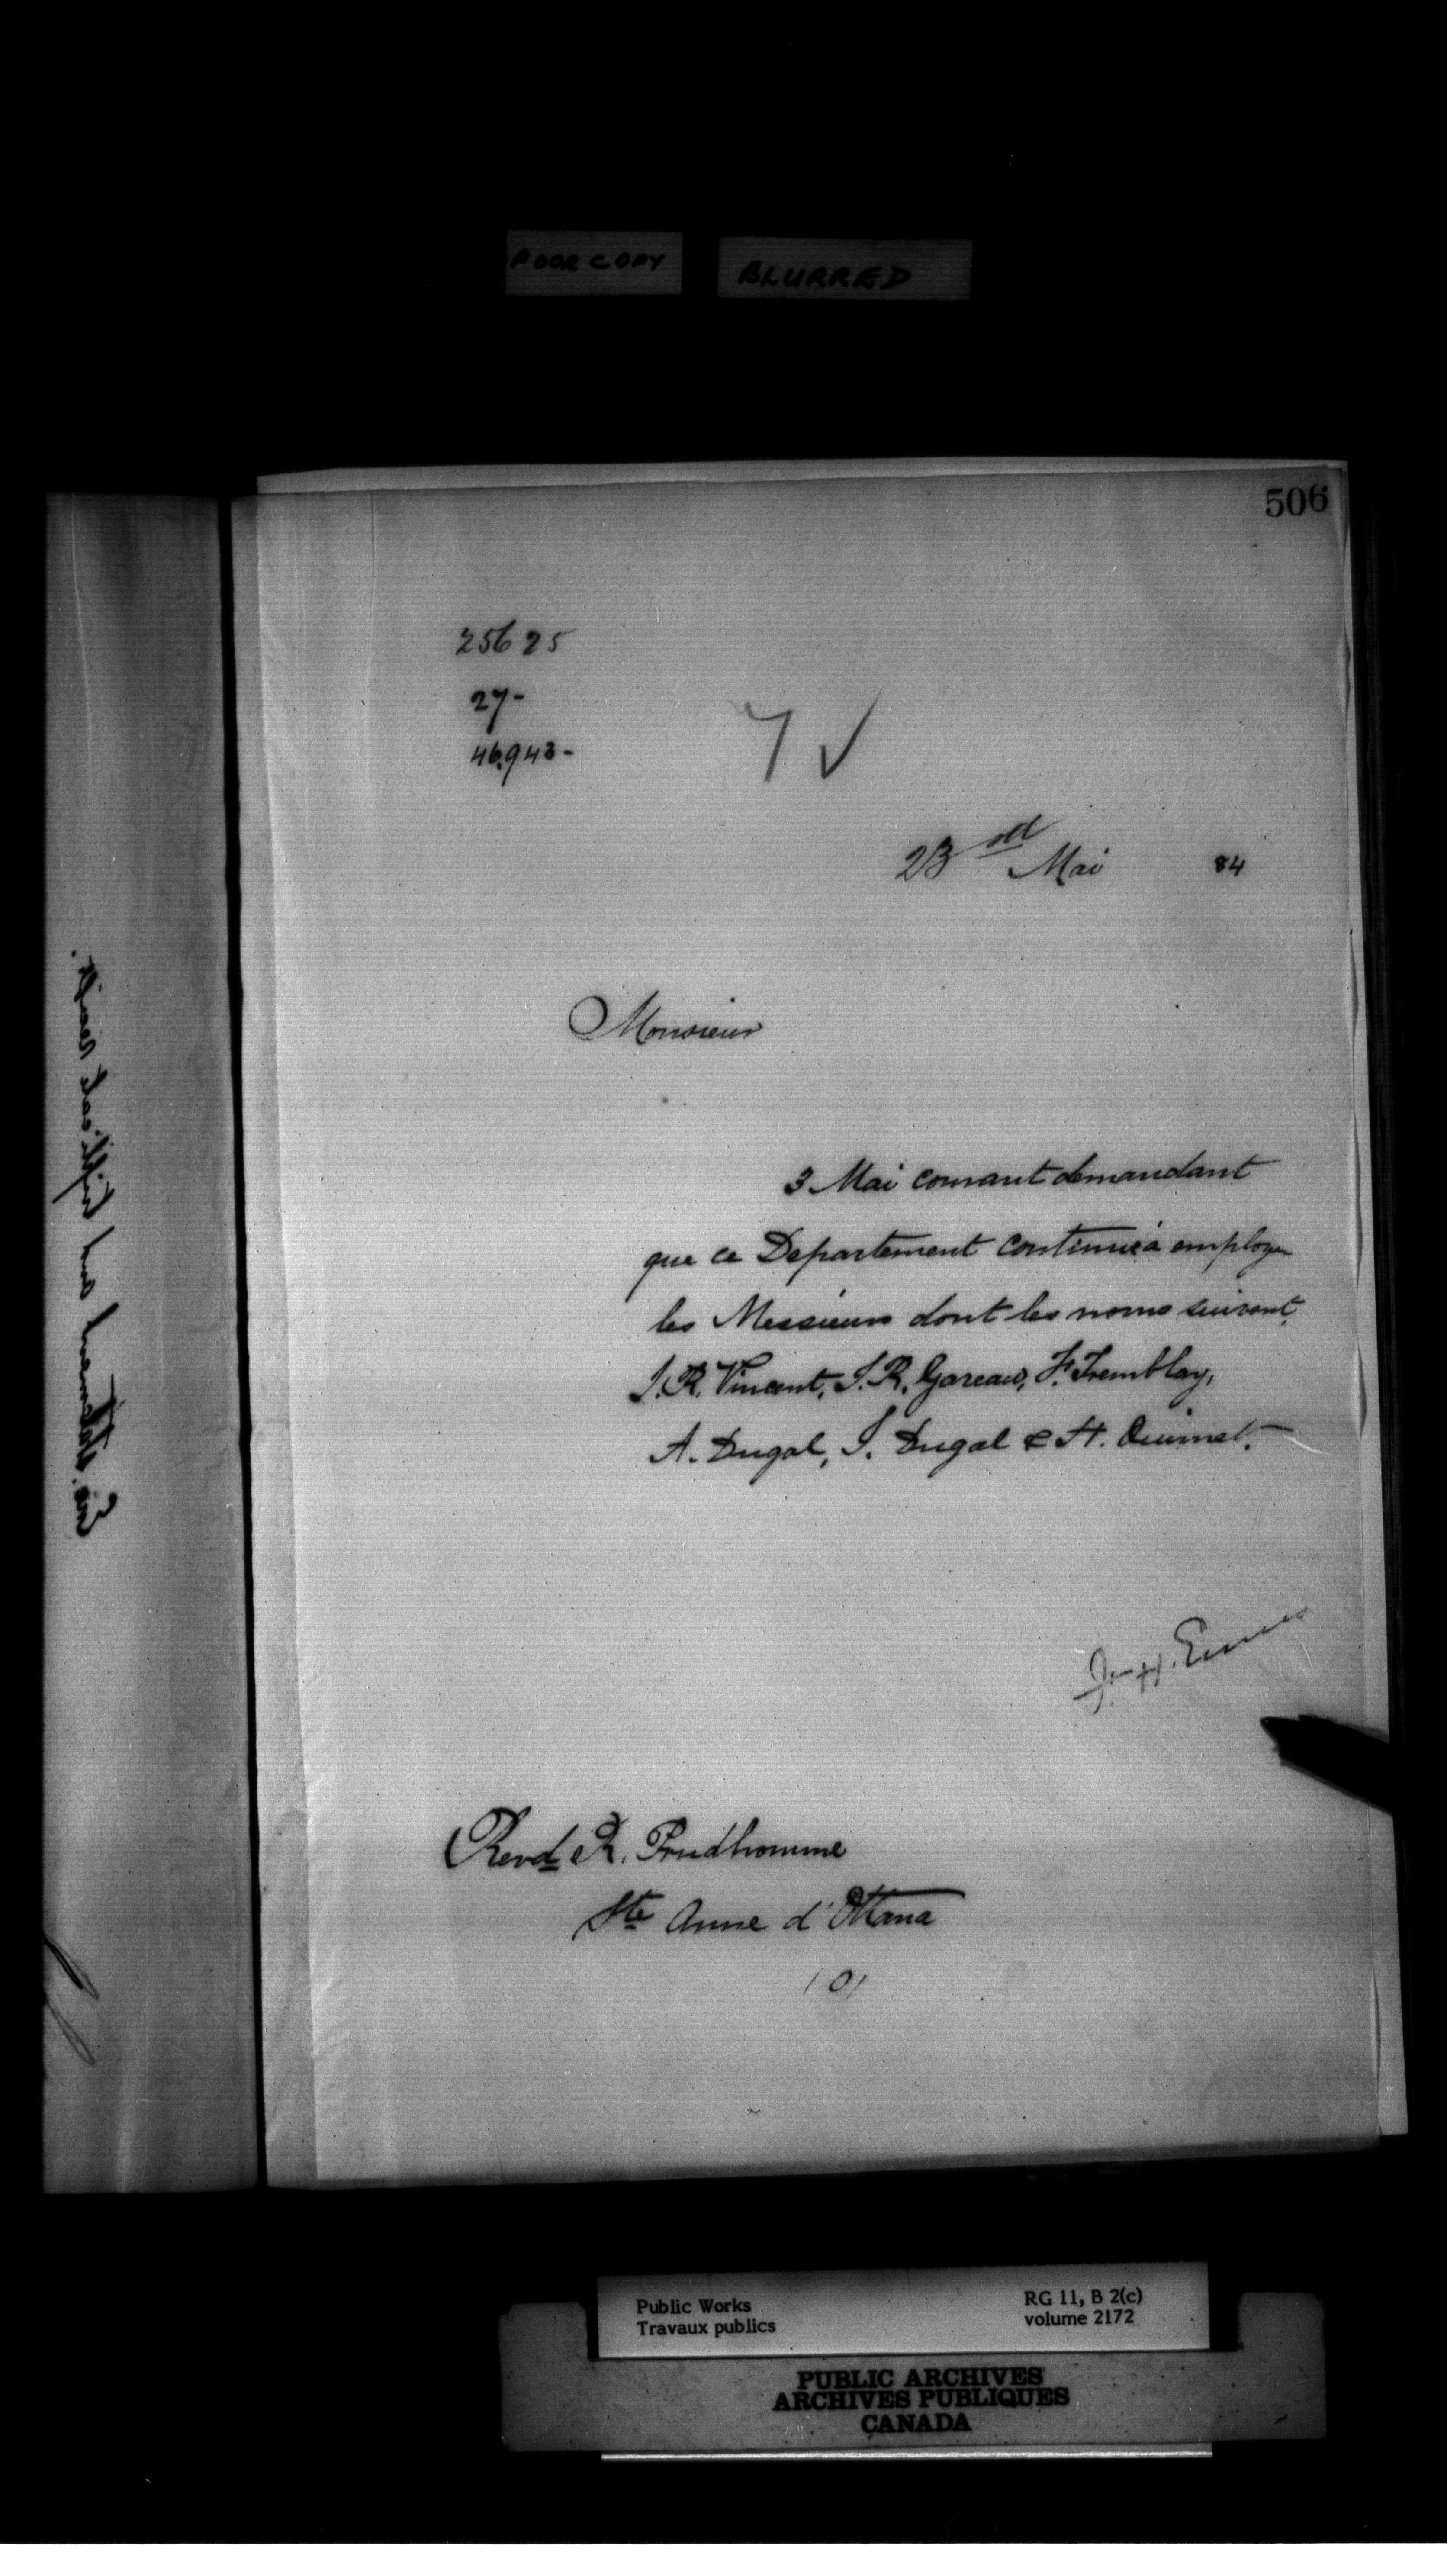 POOR COPY BLURRED
506
25625
27-
46943-
7 ✓
23rd Mai 84
Monsieur
3 Mai courant demandant
que ce Departement continue à employer
les Messieurs dont les noms suivent,
J. R. Vincent, J. R. Gareau, F. Tremblay,
A. Dugal, J. Dugal & H. Ouimet.
Revd R. Prudhomme
Ste Anne d'Ottawa
Public Works
Travaux publics
RG 11, B 2(c)
volume 2172
PUBLIC ARCHIVES
ARCHIVES PUBLIQUES
CANADA